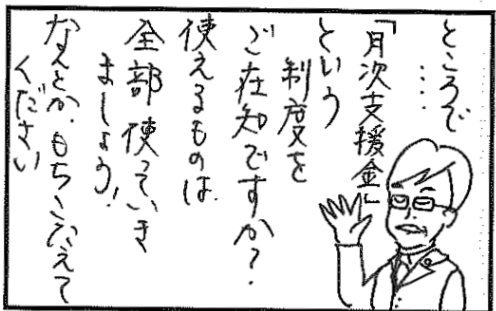 ところで…
「月次支援金」
という
制度を
ご在知ですか？
使えるものは
全部使っていき
ましょう！
なんとかもちこたえて
ください